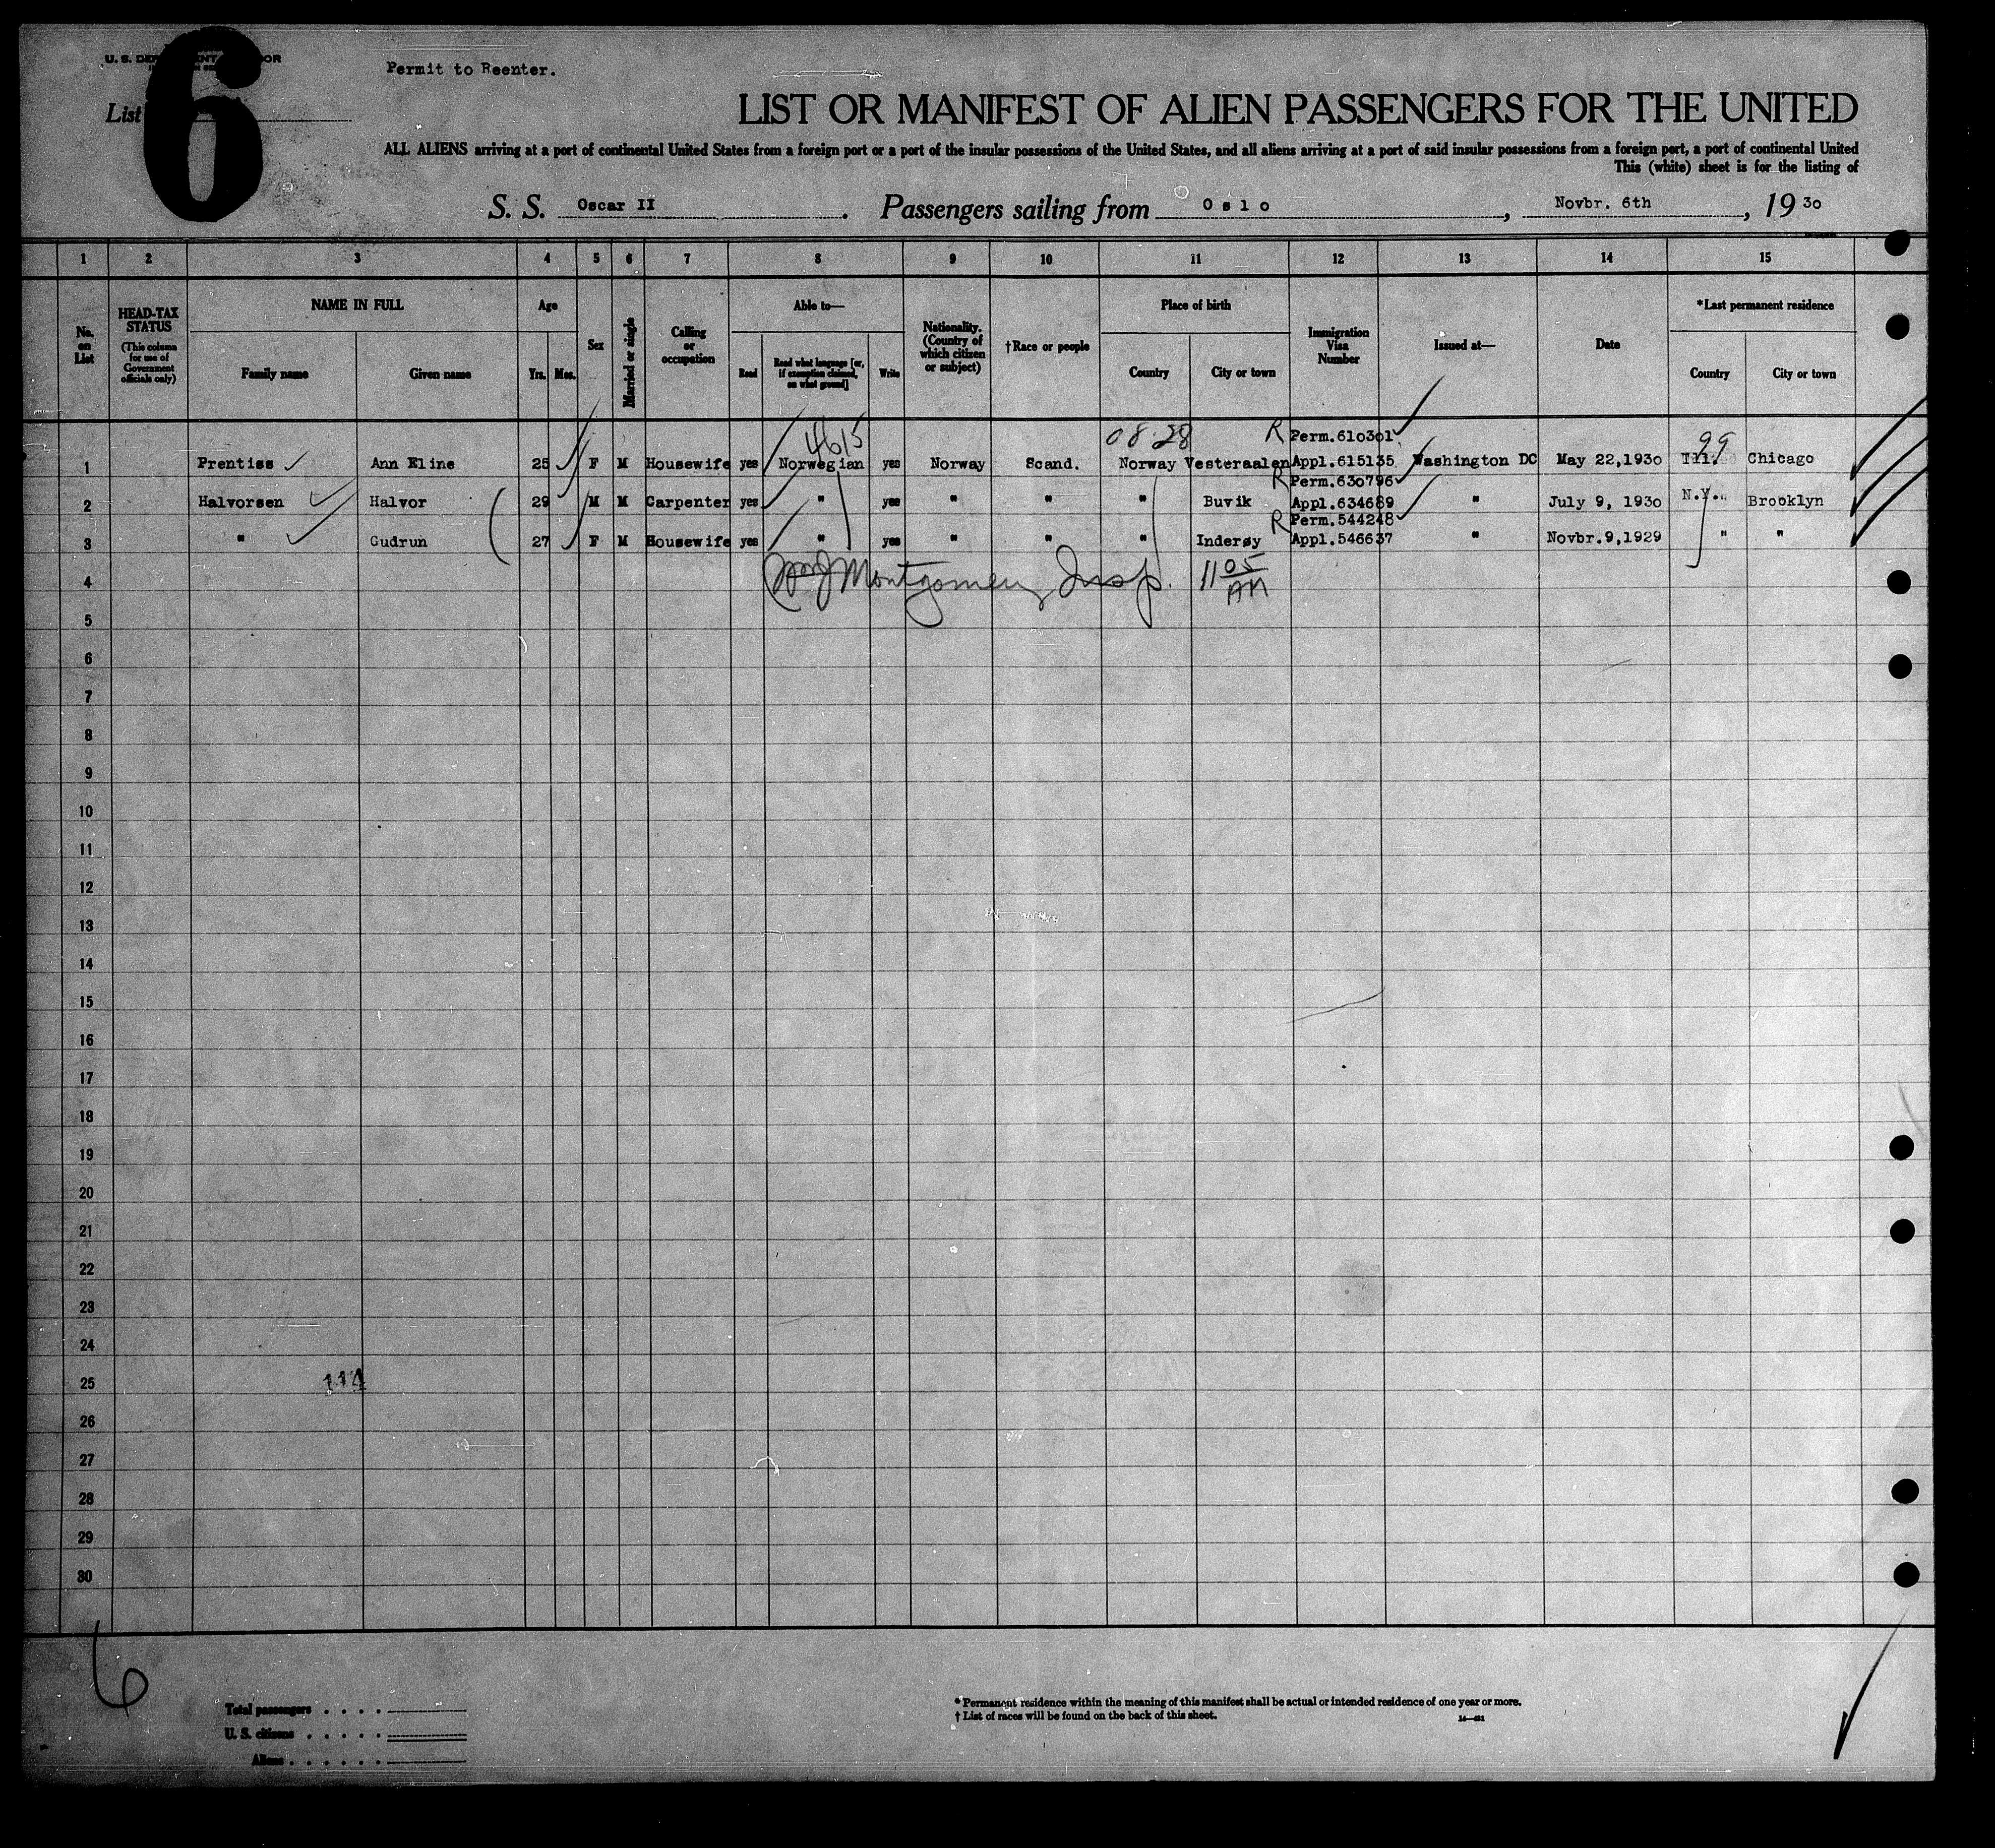 U. S. DE ENT OR
Permit to Reenter.
List 6
LIST OR MANIFEST OF ALIEN PASSENGERS FOR THE UNITED
ALL ALIENS arriving at a port of continental United States from a foreign port or a port of the insular possessions of the United States, and all aliens arriving at a port of said insular possessions from a foreign port, a port of continental United
This (white) sheet is for the listing of
S. S. Oscar II. Passengers sailing from Oslo, Novbr. 6th, 1930
1 2 3 4 5 6 7 8 9 10 11 12 13 14 15
No. on List
HEAD-TAX STATUS (This column for use of Government officials only)
NAME IN FULL
Family name Given name
Age
Yrs. Mos.
Sex
Married or single
Calling or occupation
Able to—
Read Read what language [or, if exemption claimed, on what ground] Write
Nationality. (Country of which citizen or subject)
†Race or people
Place of birth
Country City or town
Immigration Visa Number
Issued at—
Date
*Last permanent residence
Country City or town
4615 08.28 R Perm.610301 99
1 Prentiss Ann Eline 25 F M Housewife yes Norwegian yes Norway Scand. Norway Vesteraalen Appl.615135 Washington DC May 22,1930 Ill. Chicago
R Perm.630796
2 Halvorsen Halvor 29 M M Carpenter yes " yes " " " Buvik Appl.634689 " July 9, 1930 N.Y. Brooklyn
R Perm.544248
3 " Gudrun 27 F M Housewife yes " yes " " " Inderøy Appl.546637 " Novbr.9,1929 " "
4 Montgomery Insp. 11 05 AM
5
6
7
8
9
10
11
12
13
14
15
16
17
18
19
20
21
22
23
24
25 114
26
27
28
29
30
6
Total passengers . . . .
U. S. citizens . . . . .
Aliens . . . . . .
* Permanent residence within the meaning of this manifest shall be actual or intended residence of one year or more.
† List of races will be found on the back of this sheet.